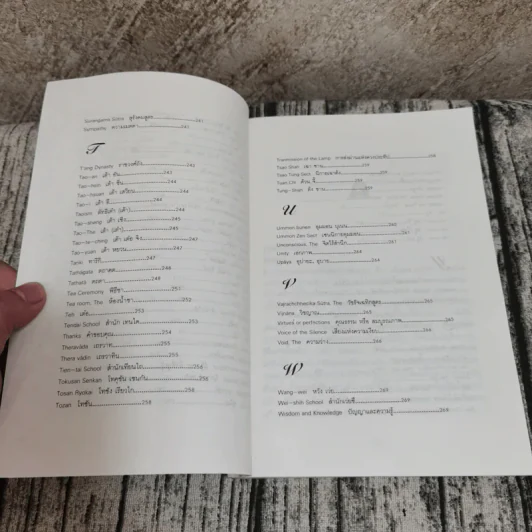 Surangama Sutra สุรังคมสูตร 241
Sympathy ความเมตตา 241
T
T'ang Dynasty ราชวงศ์ถัง 242
Tao-an เต้า อัน 243
Tao-hsin เต้า ซิ่น 244
Tao-hsuan เต้า เสวียน 244
Tao-i เต้า อี้ 244
Taoism ลัทธิเต๋า (เต้า) 244
Tao-sheng เต้า เซิง 245
Tao-The เต้า (เต๋า) 245
Tao-te-ching เต้า เต๋อ จิง 245
Tao-yuan เต้า หยวน 247
Tariki ทาริกี 247
Tathagata ตถาคต 248
Tathata ตถตา 248
Tea Ceremony พิธีชา 249
Tea room, The ห้องน้ำชา 252
Te เต๋อ 253
Tendai School สำนัก เทนได 253
Thanks คำขอบคุณ 254
Theravada เถรวาท 255
Thera vadin เถรวาทิน 255
Tien-tai School สำนักเทียนไถ 256
Tokusan Senkan โทคุซัน เซนกัน 256
Tosan Ryokai โทซัง เรียวไก 258
Tozan โทซัน 258
Transmission of the Lamp การส่งผ่านประทีป 258
Tsan Shan 259
Tsao Tung Sect นิกายเฉาต้ง 259
Tung-Shan ต้ง ซาน 259
U
Ummon Sunen อุมมอน บุนเน 260
Ummon Zen Sect เซนนิกายอุมมอน 261
Unconscious, The จิตไร้สำนึก 261
Unity เอกภาพ 261
Upaya อุปายะ, อุบาย
V
Vajrachchhedika Sutra, The วัชรัจเฉทิกสูตร 265
Vijnana วิชญาณ 265
Virtues or perfections คุณธรรม หรือ สมบูรณภาพ 265
Voice of the Silence เสียงแห่งความเงียบ 266
Void, The ความว่าง 266
W
Wang-wei หวัง เวย 269
Wei-shih School สำนักเว่ยซื่อ 269
Wisdom and Knowledge ปัญญาและความรู้ 269